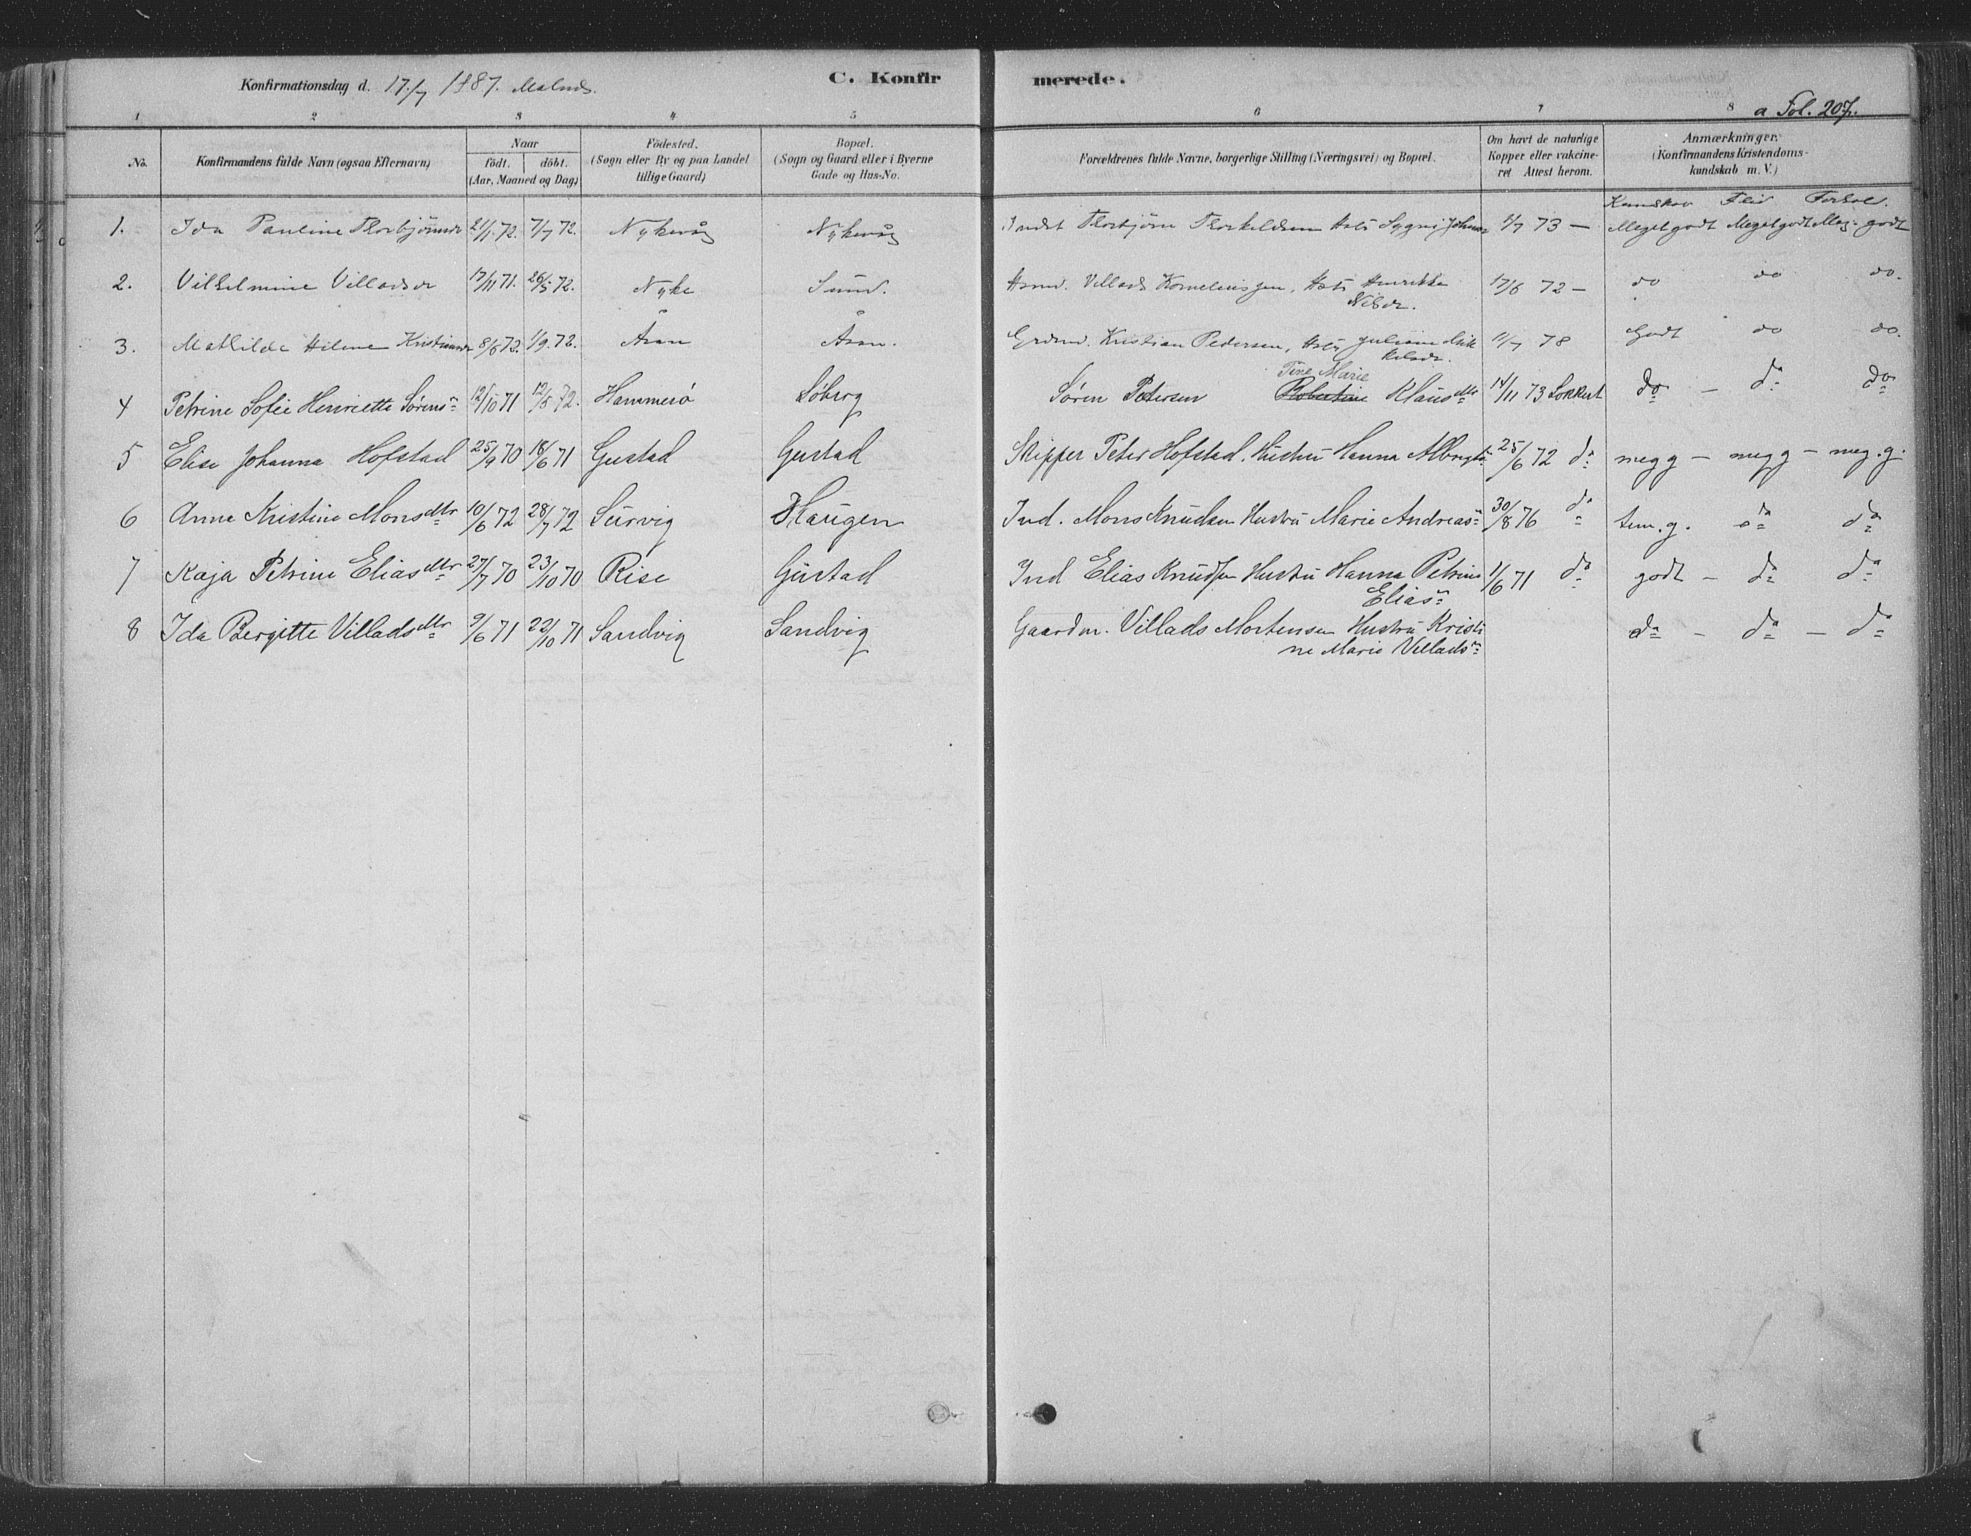 Konfirmationsdag d. 17/7 1887. Malnes. C. Konfirmerede.
a Fol. 207.
1 2 3 4 5 6 7 8
No. Konfirmandens fulde Navn (ogsaa Efternavn) Naar födt. döbt. (Aar, Maaned og Dag) Födested. (Sogn eller By og paa Landet tillige Gaard) Bopæl. (Sogn og Gaard eller i Byerne Gade og Hus-No. Forældrenes fulde Navne, borgerlige Stilling (Næringsvei) og Bopæl. Om havt de naturlige Kopper eller vakcineret Attest herom. Anmærkninger. (Konfirmandens Kristendomskundskab m. V.)
Kundskab Flid Forhol.
1. Ida Pauline Thorbjörnsdr 21/1 72. 7/7 72. Nykvåg Nykvåg Indst Thorbjörn Thorkeldsen Hst 1/7 73 — Megetgodt Megetgodt Meg. godt
2. Vilhelmine Villadsdr 17/11 71. 26/5 72. Nyke Sund. Hsmd. Villads Kornelenssen, Hst Henrikke
Nilsdr. 17/6 72 — do do do.
3. Mathilde Helene Kristiansdr 8/6 72. 1/9 72. Åsan Åsan. Grdmd. Kristian Pedersen, Hst Juliane Mik
kelsdr. 11/7 78 Godt do do.
4 Petrine Sofie Henriette Sörensn 12/10 71 12/5 72. Hammerö Löberg Sören Petersen Tine Marie
Robertine Klausdtr 14/11 73 Lokkert do — do do
5 Elise Johanna Hofstad 25/9 70 18/6 71 Gustad Gustad Skipper Peter Hofstad. Hustru Hanna Albrigtn 25/6 72 do meg g — meg g — meg. g.
6 Anne Kristine Monsdtr 10/6 72 28/7 72 Survig Haugen Ind. Mons Knudsen Hustru Marie Andreasn 30/8 76 do tem. g. do do
7 Kaja Petrine Eliasdtr 27/7 70 23/10 70 Rise Gustad Ind Elias Knudsen Hustru Hanna Petrine
Eliasn 1/6 71 do godt — do do
8 Ida Bergitte Villadsdtr 9/6 71 22/10 71 Sandvig Sandvig Gaardm. Villads Mortensen Hustru Kristi
ne Marie Villadsn do — do — do